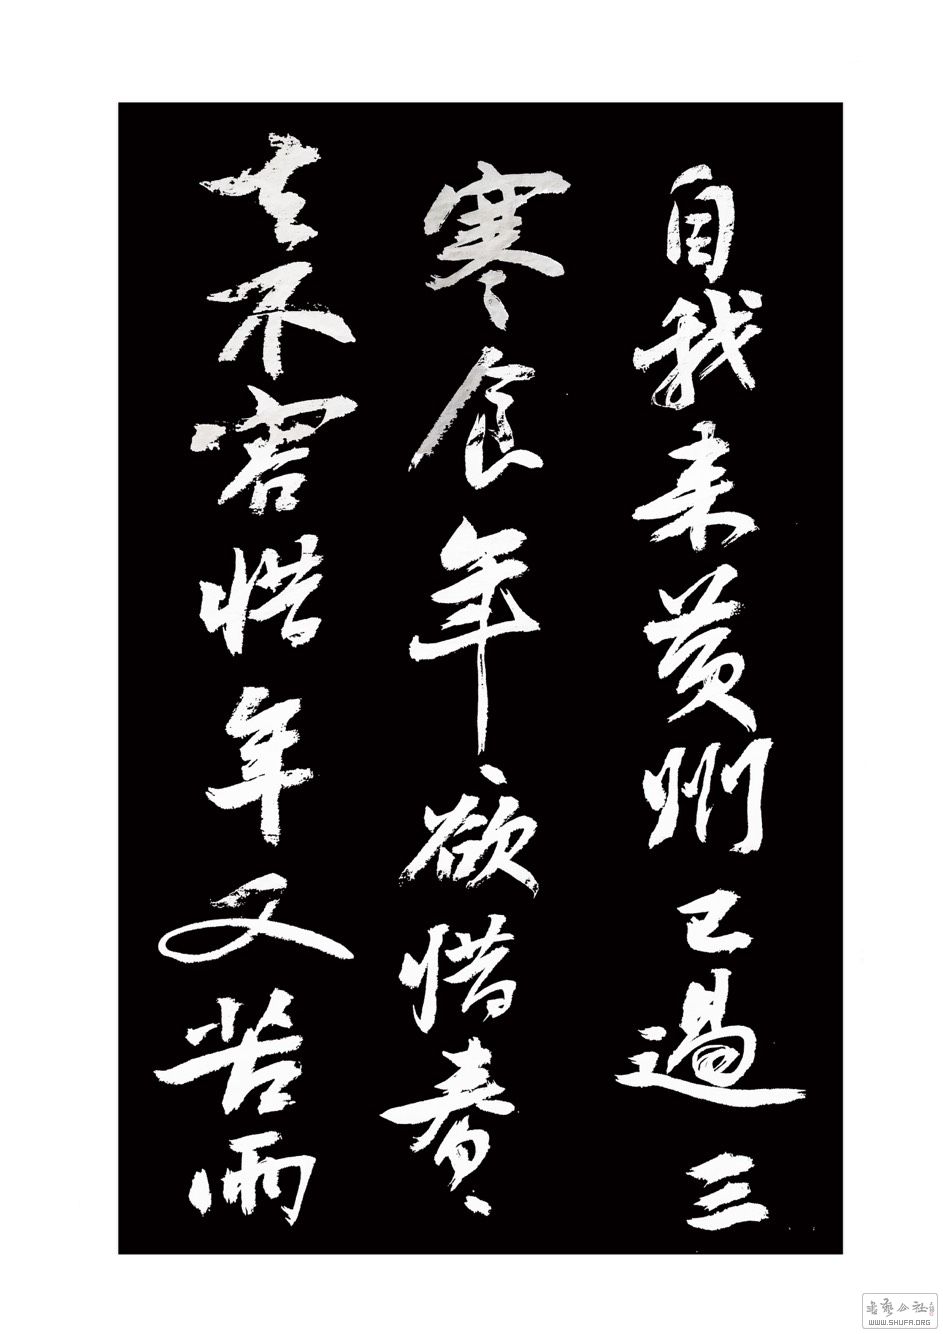 自我来黄州已過三
寒食年〻欲惜春〻
去不容惜年又苦雨
書藝公社
WWW.SHUFA.ORG